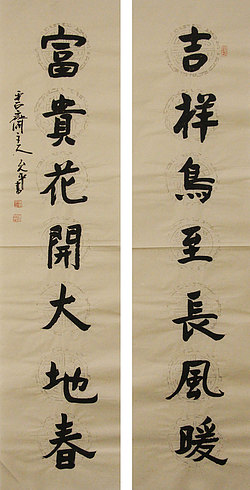 吉祥鳥至長風暖
富貴花開大地春